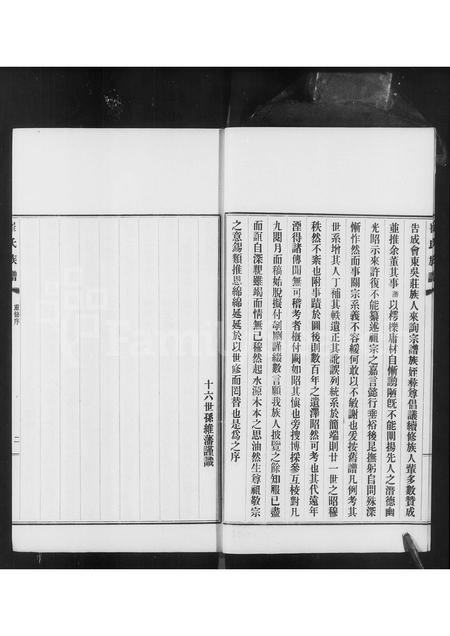 告成會東吳莊族人來詢宗譜族姪彝尊倡議續修族人輩多數贊成
並推余董其事潘以樗櫟庸材自慚謭陋旣不能闡揚先人之潛德幽
光昭示來許復不能纂述祖宗之嘉言懿行垂裕後昆撫躬自問殊深
慚怍然而事關宗系義不容緩何敢以不敏謝也爰按舊譜凡例考其
世系增其人丁補其軼遺正其訛誤列統系於簡端則廿一世之昭穆
秩然不紊也附事蹟於圖後則數百年之遺澤昭然可考也其代遠年
湮得諸傳聞無可稽考者槪付闕如昭其愼也旁搜博採參互校對凡
九閱月而稿始脫擬付剞劂謹綴數言願我族人披覽之餘知服已盡
而誼自深親雖竭而情無已穆然起水源木本之思油然生尊祖敬宗
之意錫類推恩綿綿延延於以世修而罔替也是爲之序
十六世孫維藩謹識
氏族譜
重修序
二